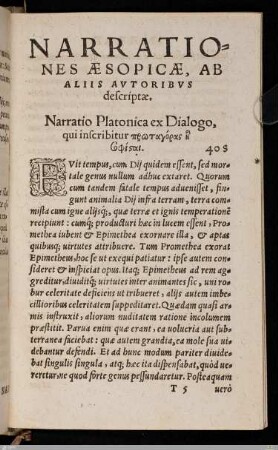 NARRATIO-
NES ÆSOPICÆ, AB
ALIIS AVTORIBVS
descriptæ.
Narratio Platonica ex Dialogo,
qui inscribitur πρωταγόρας ἢ
σοφίσαι. 408
FVit tempus, cum Dij quidem essent, sed mor-
tale genus nullum adhuc extaret. Quorum
cum tandem fatale tempus aduenisset, fin-
gunt animalia Dij infra terram, terra com-
mista cum igne alijsq́;, quæ terræ et ignis temperationē
recipiunt: cumq́; producturi hæc in lucem essent, Pro-
metheæ iubent & Epimetheæ exornare illa, & aptas
quibusq́; uirtutes attribuere. Tum Promethea exorat
Epimetheus, hoc se ut exequi patiatur: ipse autem con-
sideret & inspiciat opus. Itaq́; Epimetheus ad rem ag-
greditur, diuiditq́; uirtutes inter animantes sic, uni ro-
bur celeritate deficiens ut tribueret, alijs autem imbe-
cillioribus celeritatem suppeditaret. Quædam quasi ar-
mis instruxit, aliorum nuditatem ratione incolumem
præstitit. Parua enim qua erant, ea uolucria aut sub-
terranea faciebat: quæ autem grandia, ea mole sua uti-
debantur defendi. Et ad hunc modum pariter diuide-
bat singulis singula, atq; hæc ita dispensabat, quòd ue-
reretur, ne quod forte genus pessundaretur. Postequam
T 5 uerò